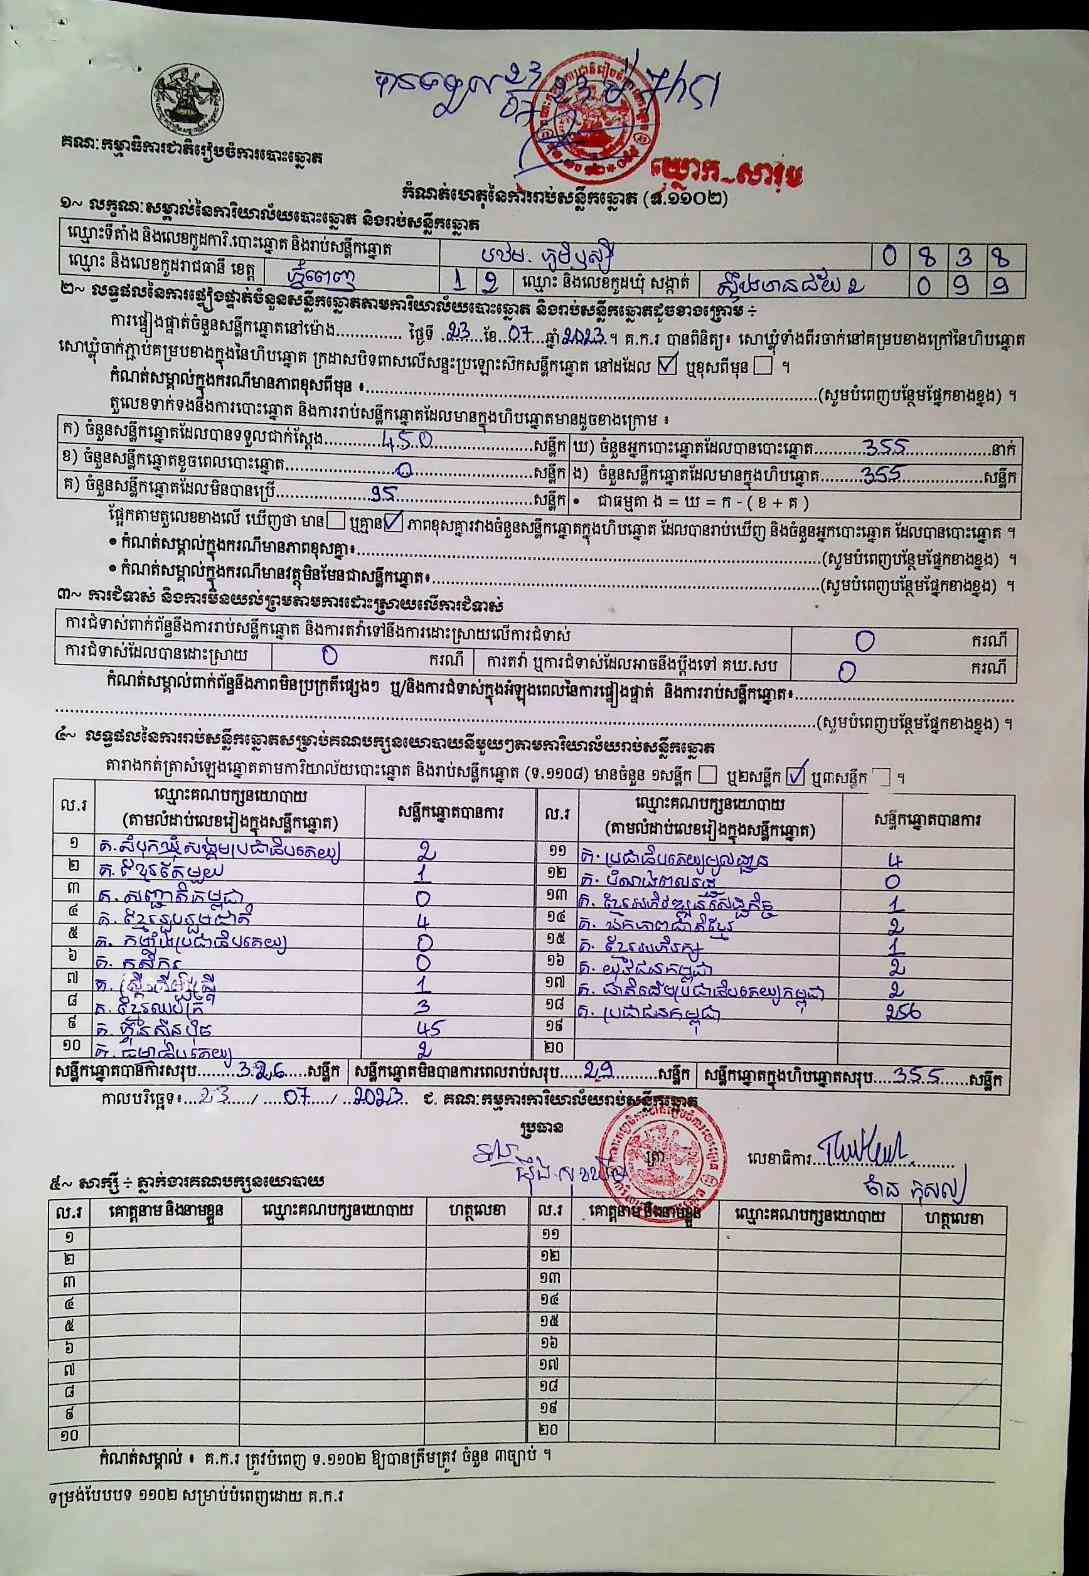 បានទទួល 23
07 23 ម៉ 7
គណៈកម្មាធិការជាតិរៀបចំការបោះឆ្នោត
ឃ្លោក សារុំ
កំណត់ហេតុនៃការរាប់សន្លឹកឆ្នោត (ទ.១១០២)
១~ លក្ខណៈសម្គាល់នៃការិយាល័យបោះឆ្នោត និងរាប់សន្លឹកឆ្នោត
ឈ្មោះទីតាំង និងលេខកូដការិ.បោះឆ្នោត និងរាប់សន្លឹកឆ្នោត បឋម. ភូមិឫស្សី 0 8 3 8
ឈ្មោះ និងលេខកូដរាជធានី ខេត្ត ភ្នំពេញ 1 2 ឈ្មោះ និងលេខកូដឃុំ សង្កាត់ ស្ទឹងមានជ័យ 2 0 9 9
២~ លទ្ធផលនៃការផ្ទៀងផ្ទាត់ចំនួនសន្លឹកឆ្នោតតាមការិយាល័យបោះឆ្នោត និងរាប់សន្លឹកឆ្នោតដូចខាងក្រោម ÷
ការផ្ទៀងផ្ទាត់ចំនួនសន្លឹកឆ្នោតនៅម៉ោង............. ថ្ងៃទី 23 ខែ 07 ឆ្នាំ 2023 ។ គ.ក.រ បានពិនិត្យ៖ សោឃ្លុំទាំងពីរចាក់នៅគម្របខាងក្រៅនៃហិបឆ្នោត
សោឃ្លុំចាក់ភ្ជាប់គម្របខាងក្នុងនៃហិបឆ្នោត ក្រដាសបិទពាសលើសន្ទះប្រឡោះស៊កសន្លឹកឆ្នោត នៅដដែល ☑ ឬខុសពីមុន ☐ ។
កំណត់សម្គាល់ក្នុងករណីមានភាពខុសពីមុន ៖..............(សូមបំពេញបន្ថែមផ្នែកខាងខ្នង) ។
តួលេខទាក់ទងនឹងការបោះឆ្នោត និងការរាប់សន្លឹកឆ្នោតដែលមានក្នុងហិបឆ្នោតមានដូចខាងក្រោម ៖
ក) ចំនួនសន្លឹកឆ្នោតដែលបានទទួលជាក់ស្តែង 450 សន្លឹក ឃ) ចំនួនអ្នកបោះឆ្នោតដែលបានបោះឆ្នោត 355 នាក់
ខ) ចំនួនសន្លឹកឆ្នោតខូចពេលបោះឆ្នោត 0 សន្លឹក ង) ចំនួនសន្លឹកឆ្នោតដែលមានក្នុងហិបឆ្នោត 355 សន្លឹក
គ) ចំនួនសន្លឹកឆ្នោតដែលមិនបានប្រើ 95 សន្លឹក • ជាធម្មតា ង = ឃ = ក - ( ខ + គ )
ផ្អែកតាមតួលេខខាងលើ ឃើញថា មាន ☐ ឬគ្មាន ☑ ភាពខុសគ្នារវាងចំនួនសន្លឹកឆ្នោតក្នុងហិបឆ្នោត ដែលបានរាប់ឃើញ និងចំនួនអ្នកបោះឆ្នោត ដែលបានបោះឆ្នោត ។
• កំណត់សម្គាល់ក្នុងករណីមានភាពខុសគ្នា៖..............(សូមបំពេញបន្ថែមផ្នែកខាងខ្នង) ។
• កំណត់សម្គាល់ក្នុងករណីមានវត្ថុមិនមែនជាសន្លឹកឆ្នោត៖..............(សូមបំពេញបន្ថែមផ្នែកខាងខ្នង) ។
៣~ ការជំទាស់ និងការមិនយល់ព្រមតាមការដោះស្រាយលើការជំទាស់
ការជំទាស់ពាក់ព័ន្ធនឹងការរាប់សន្លឹកឆ្នោត និងការតវ៉ាទៅនឹងការដោះស្រាយលើការជំទាស់ 0 ករណី
ការជំទាស់ដែលបានដោះស្រាយ 0 ករណី ការតវ៉ា ឬការជំទាស់ដែលអាចនឹងប្តឹងទៅ គឃ.សប 0 ករណី
កំណត់សម្គាល់ពាក់ព័ន្ធនឹងភាពមិនប្រក្រតីផ្សេងៗ ឬ/និងការជំទាស់ក្នុងអំឡុងពេលនៃការផ្ទៀងផ្ទាត់ និងការរាប់សន្លឹកឆ្នោត៖..............
..............(សូមបំពេញបន្ថែមផ្នែកខាងខ្នង) ។
៤~ លទ្ធផលនៃការរាប់សន្លឹកឆ្នោតសម្រាប់គណបក្សនយោបាយនីមួយៗតាមការិយាល័យរាប់សន្លឹកឆ្នោត
តារាងកត់ត្រាសំឡេងឆ្នោតតាមការិយាល័យបោះឆ្នោត និងរាប់សន្លឹកឆ្នោត (ទ.១១០៨) មានចំនួន ១សន្លឹក ☐ ឬ២សន្លឹក ☑ ឬ៣សន្លឹក ☐ ។
ល.រ ឈ្មោះគណបក្សនយោបាយ (តាមលំដាប់លេខរៀងក្នុងសន្លឹកឆ្នោត) សន្លឹកឆ្នោតបានការ ល.រ ឈ្មោះគណបក្សនយោបាយ (តាមលំដាប់លេខរៀងក្នុងសន្លឹកឆ្នោត) សន្លឹកឆ្នោតបានការ
១ គ.សំបុកឃ្មុំសង្គមប្រជាធិបតេយ្យ 2 ១១ គ. ប្រជាធិបតេយ្យមូលដ្ឋាន 4
២ គ. ខ្មែរតែមួយ 1 ១២ គ. បំណងពលរដ្ឋ 0
៣ គ. សញ្ជាតិកម្ពុជា 0 ១៣ គ. ខ្មែរអភិវឌ្ឍន៍សេដ្ឋកិច្ច 1
៤ គ. ខ្មែររួបរួមជាតិ 4 ១៤ គ. ឯកភាពជាតិខ្មែរ 2
៥ គ. កម្លាំងប្រជាធិបតេយ្យ 0 ១៥ គ. ខ្មែរអភិរក្ស 1
៦ គ. កសិករ 0 ១៦ គ. យុវជនកម្ពុជា 2
៧ គ. ស្ត្រីដើម្បីស្ត្រី 1 ១៧ គ. ជាតិដើម្បីប្រជាធិបតេយ្យកម្ពុជា 2
៨ គ. ខ្មែរឈប់ក្រ 3 ១៨ គ. ប្រជាជនកម្ពុជា 256
៩ គ. ហ្វ៊ុនស៊ិនប៉ិច 45 ១៩
១០ គ. ធម្មាធិបតេយ្យ 2 ២០
សន្លឹកឆ្នោតបានការសរុប 326 សន្លឹក សន្លឹកឆ្នោតមិនបានការពេលរាប់សរុប 29 សន្លឹក សន្លឹកឆ្នោតក្នុងហិបឆ្នោតសរុប 355 សន្លឹក
កាលបរិច្ឆេទ៖ 23 / 07 / 2023 ជ. គណៈកម្មការការិយាល័យរាប់សន្លឹកឆ្នោត
ប្រធាន
ត្រា លេខាធិការ
៥~ សាក្សី ÷ ភ្នាក់ងារគណបក្សនយោបាយ
ល.រ គោត្តនាម និងនាមខ្លួន ឈ្មោះគណបក្សនយោបាយ ហត្ថលេខា ល.រ គោត្តនាម និងនាមខ្លួន ឈ្មោះគណបក្សនយោបាយ ហត្ថលេខា
១ ១១
២ ១២
៣ ១៣
៤ ១៤
៥ ១៥
៦ ១៦
៧ ១៧
៨ ១៨
៩ ១៩
១០ ២០
កំណត់សម្គាល់ ៖ គ.ក.រ ត្រូវបំពេញ ទ.១១០២ ឱ្យបានត្រឹមត្រូវ ចំនួន ៣ច្បាប់ ។
ទម្រង់បែបបទ ១១០២ សម្រាប់បំពេញដោយ គ.ក.រ